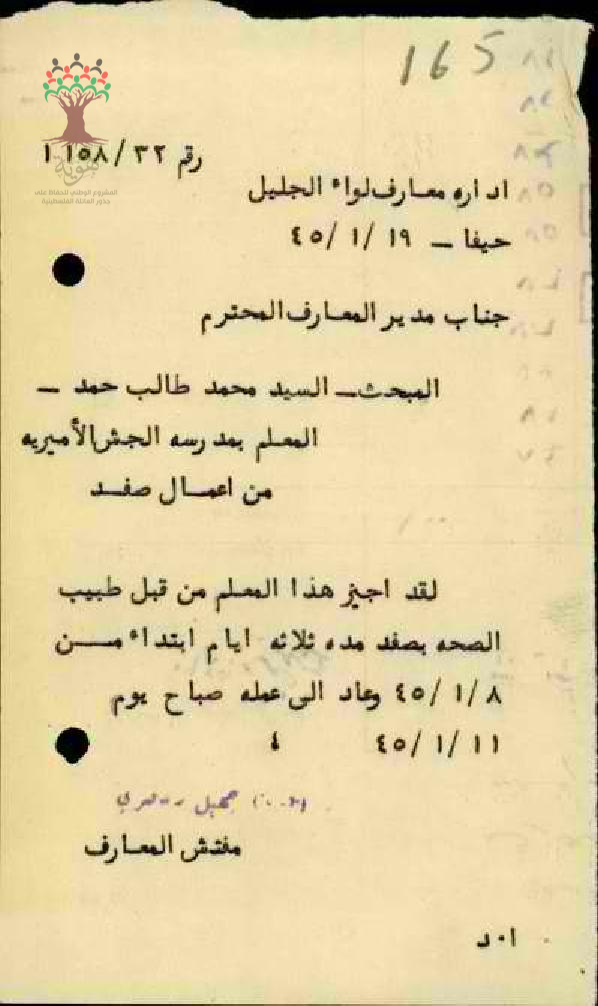 165
هوية
المشروع الوطني للحفاظ على
جذور العائلة الفلسطينية
رقم ٣٢/ ١١٥٨
اداره معارف لواء الجليل
حيفا – ١٩ /١ /٤٥
جناب مدير المعارف المحترم
المبحث – السيد محمد طالب حمد –
المعلم بمدرسه الجش الأميريه
من اعمال صفد
لقد اجيز هذا المعلم من قبل طبيب
الصحه بصفد مده ثلاثه ايام ابتداء من
٨ /١ /٤٥ وعاد الى عمله صباح يوم
١١ /١ /٤٥ ٤
جميل
مفتش المعارف
ا٠د